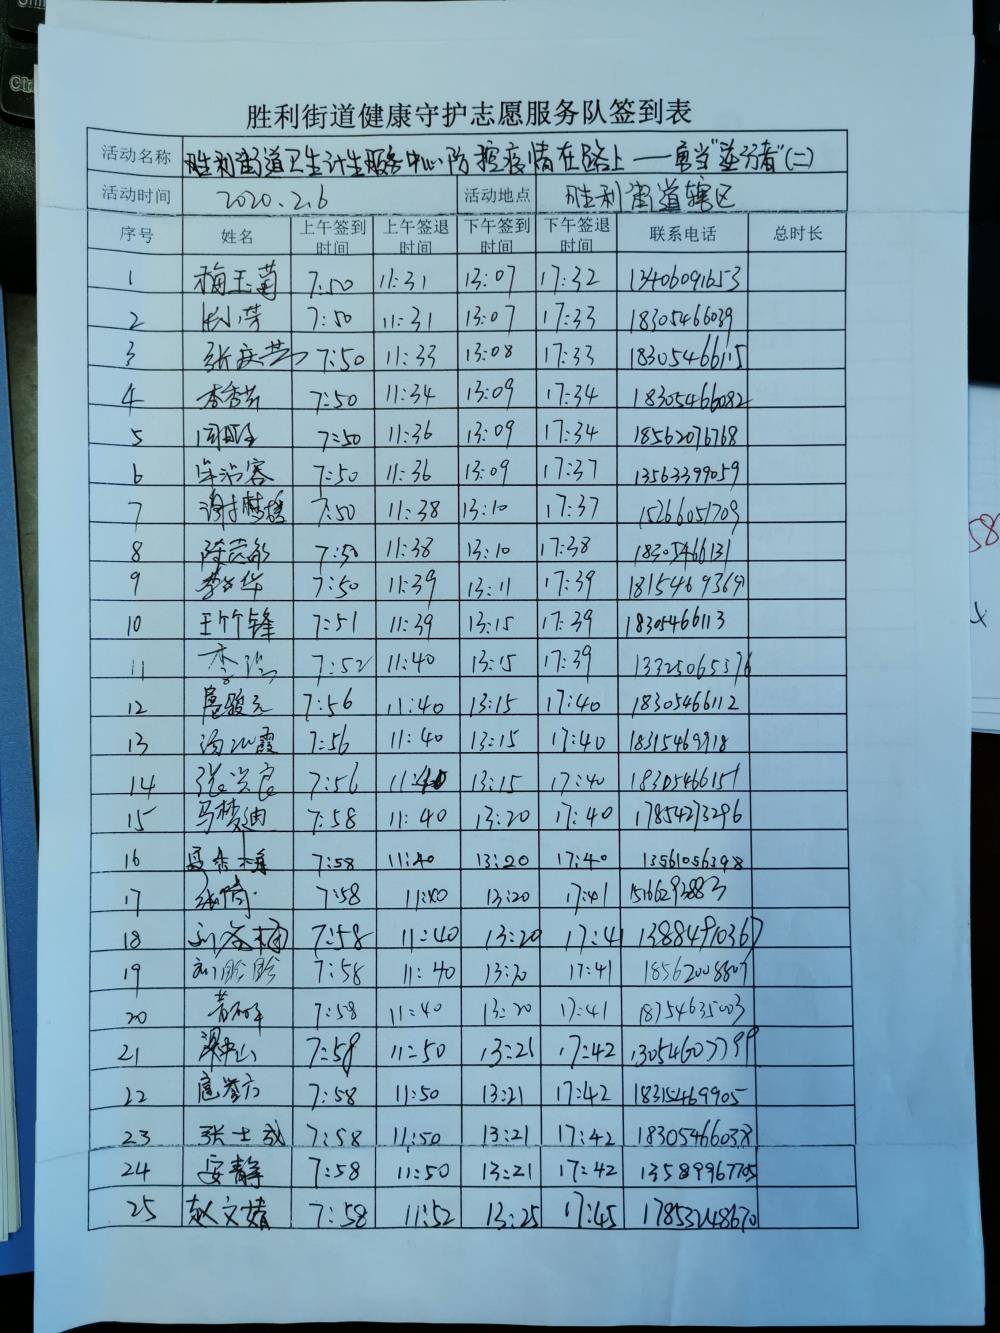 胜利街道健康守护志愿服务队签到表
活动名称 胜利街道卫生计生服务中心防控疫情在路上——勇当"逆行者"(二)
活动时间 2020.2.6 活动地点 胜利街道辖区
序号 姓名 上午签到时间 上午签退时间 下午签到时间 下午签退时间 联系电话 总时长
1 梅玉菊 7:50 11:31 13:07 17:32 13406091653
2 7:50 11:31 13:07 17:33 18305466039
3 张庆芳 7:50 11:33 13:08 17:33 18305466115
4 李秀芳 7:50 11:34 13:09 17:34 18305466082
5 7:50 11:36 13:09 17:34 18562076768
6 7:50 11:36 13:09 17:37 13563399059
7 7:50 11:38 13:10 17:37 15266051709
8 陈志敏 7:50 11:38 13:10 17:38 18305466131
9 7:50 11:39 13:11 17:39 18154693691
10 王竹锋 7:51 11:39 13:15 17:39 18305466113
11 7:52 11:40 13:15 17:39 13325065376
12 扈骏元 7:56 11:40 13:15 17:40 18305466112
13 7:56 11:40 13:15 17:40 18315469918
14 张兴良 7:56 11:40 13:15 17:40 18305466151
15 马梦迪 7:58 11:40 13:20 17:40 17854273296
16 7:58 11:40 13:20 17:40 13561056398
17 7:58 11:40 13:20 17:41 15166293883
18 7:58 11:40 13:20 17:41 13884910367
19 刘盼盼 7:58 11:40 13:20 17:41 18562008807
20 7:58 11:40 13:20 17:41 18754635003
21 梁中山 7:58 11:50 13:21 17:42 13054607799
22 7:58 11:50 13:21 17:42 18315469905
23 张士成 7:58 11:50 13:21 17:42 18305466038
24 安静 7:58 11:50 13:21 17:42 13589967705
25 赵文婧 7:58 11:52 13:25 17:45 17853248670
58